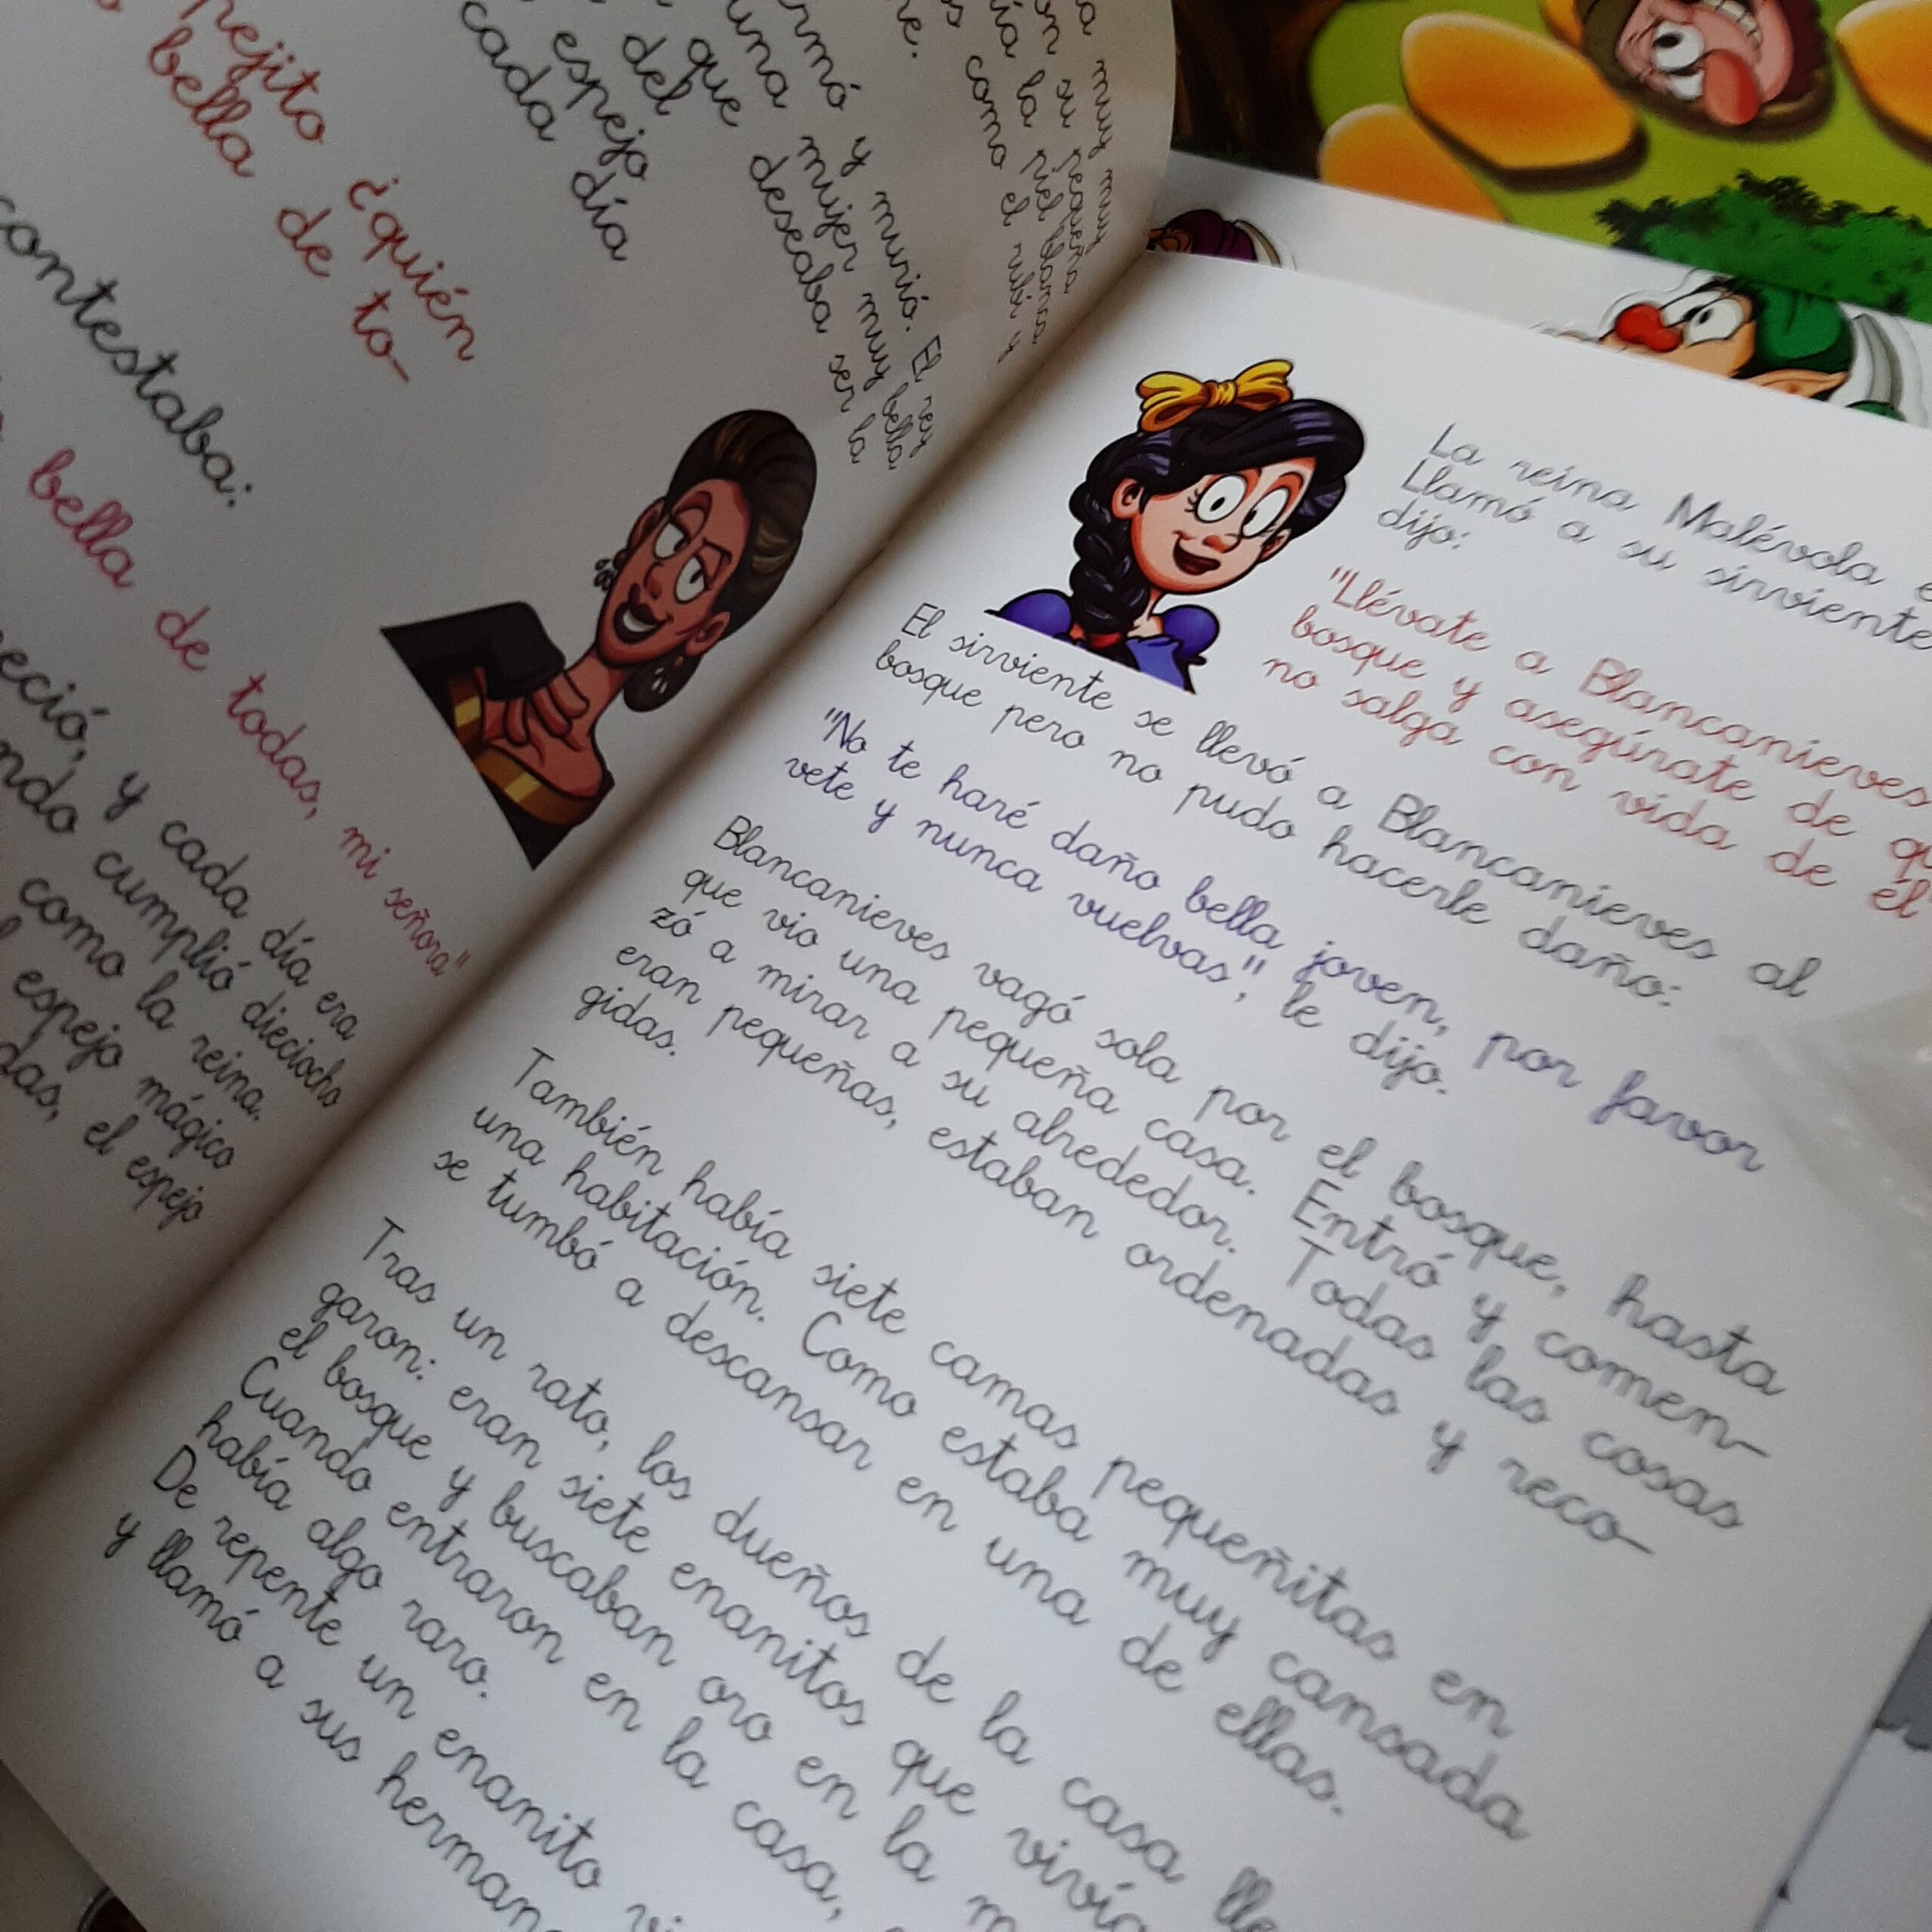 muy muy
su pequeña
la piel blanca
como el rubí y
y murió. El rey
una mujer muy bella
que deseaba ser la
del
espejo
cada día
¿quién
bella de to-
contestaba:
bella de todas, mi señora"
y cada día era
cumplió dieciocho
como la reina.
espejo mágico
el espejo
La reina Malévola
Llamó a su sirviente
dijo:
"Llévate a Blancanieves
bosque y asegúrate de
no salga con vida de él
El sirviente se llevó a Blancanieves al
bosque pero no pudo hacerle daño:
"No te haré daño bella joven, por favor
vete y nunca vuelvas", le dijo.
Blancanieves vagó sola por el bosque, hasta
que vio una pequeña casa. Entró y comen-
zó a mirar a su alrededor. Todas las cosas
eran pequeñas, estaban ordenadas y reco-
gidas.
También había siete camas pequeñitas en
una habitación. Como estaba muy cansada
se tumbó a descansar en una de ellas.
Tras un rato, los dueños de la casa lle
garon: eran siete enanitos que
el bosque y buscaban oro en la
Cuando entraron en la casa,
había algo raro.
De repente un enanito
y llamó a sus